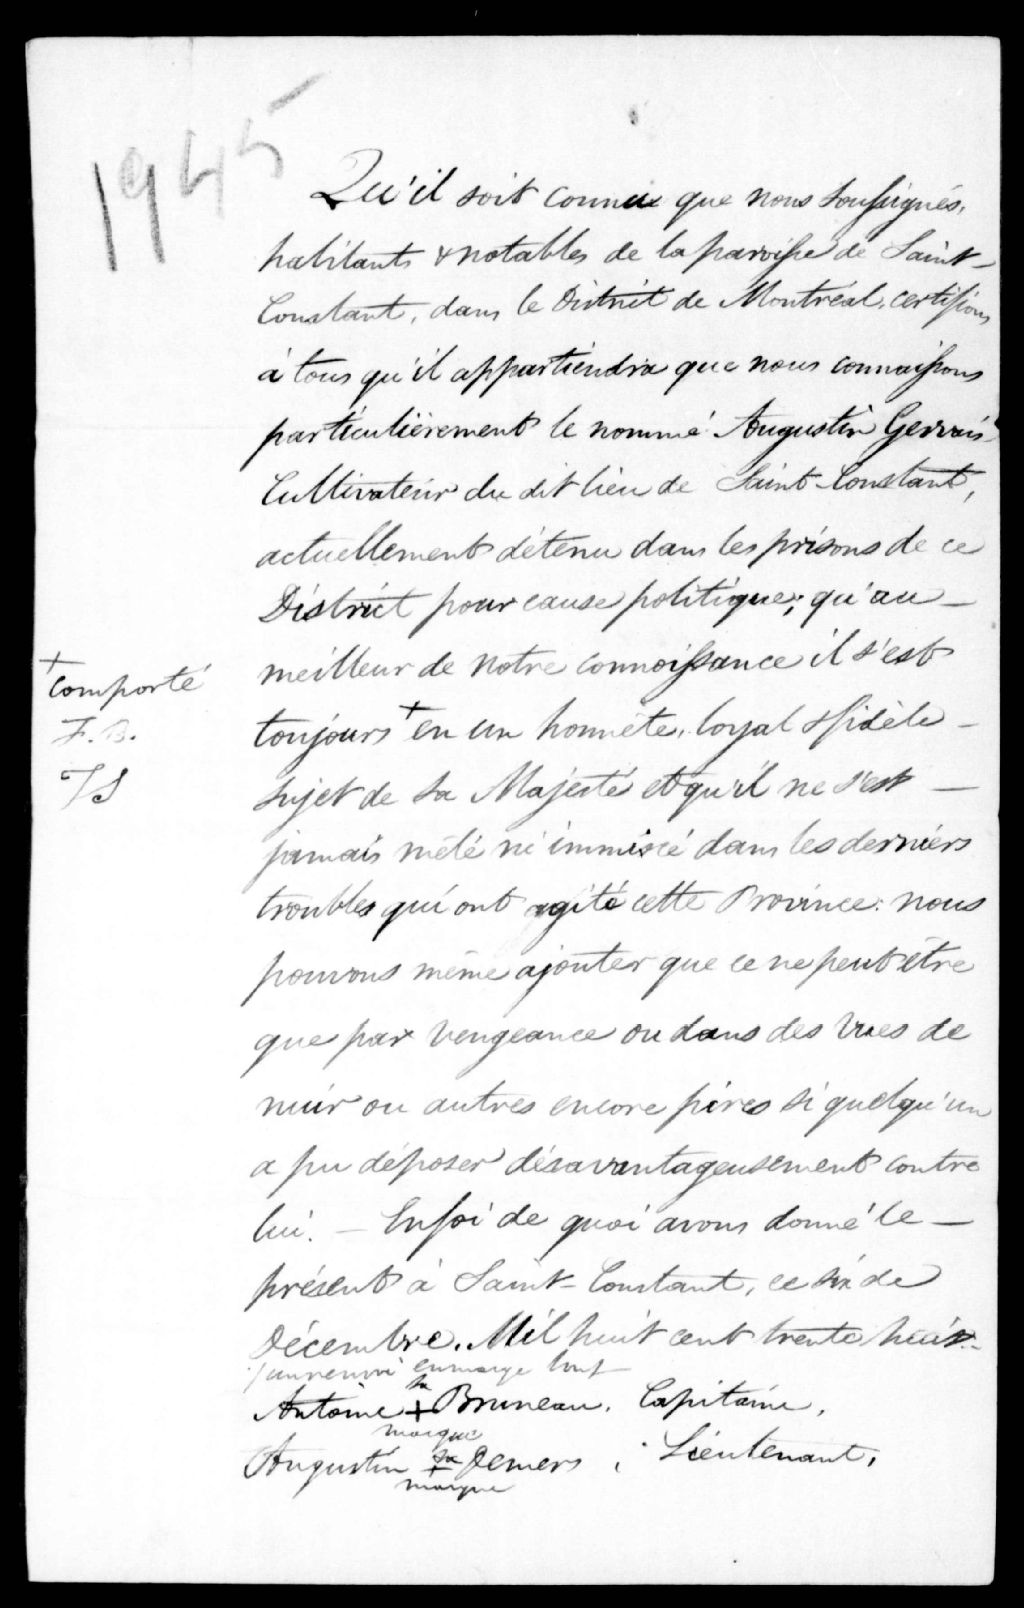 1945
Qu'il soit connu que nous soussignés,
habitants & notables de la paroisse de Saint-
Constant, dans le District de Montréal, certifions
à tous qu'il appartiendra que nous connaissons
particulièrement le nommé Augustin Gervais
Cultivateur du dit lieu de Saint-Constant,
actuellement détenu dans les prisons de ce
District pour cause politique; qu'au
meilleur de notre connoissance il s'est
+
comporté
F.B.
JS
toujours + en un honnête, loyal & fidèle
sujet de Sa Majesté et qu'il ne s'est
jamais mêlé ni immiscé dans les derniers
troubles qui ont agité cette Province: nous
pouvons même ajouter que ce ne peut être
que par vengeance ou dans des vues de
nuir ou autres encore pires si quelqu'un
a pu déposer désavantageusement contre
lui. — En foi de quoi avons donné le
présent à Saint-Constant, ce six de
Décembre. Mil huit cent trente huit.
un renvoi en marge bon
Antoine sa + marque Bruneau. Capitaine.
Augustin sa + marque Demers ; Lieutenant.